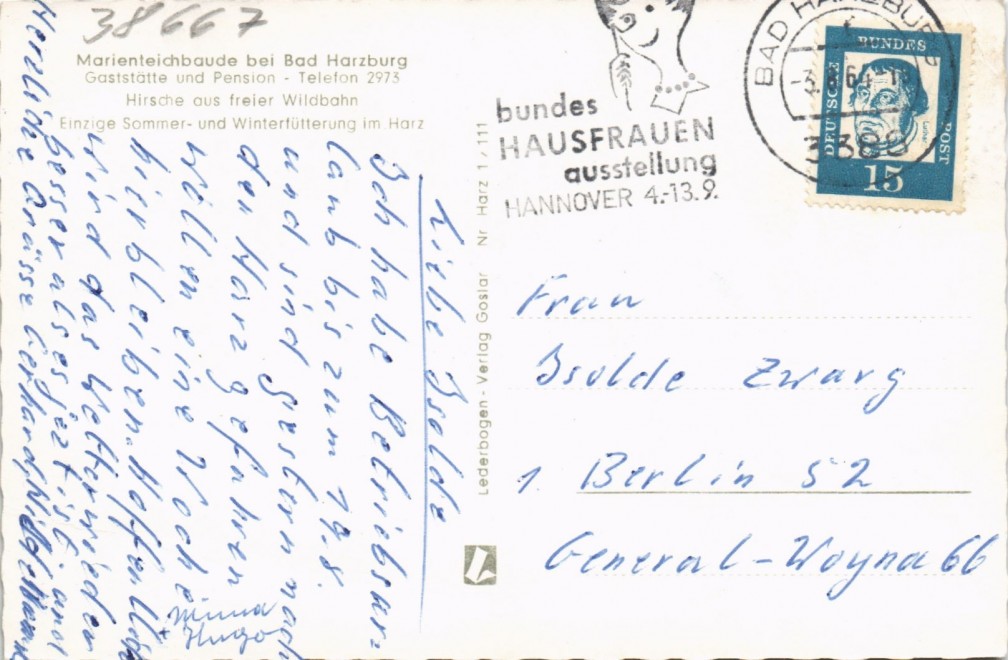 38667
Marienteichbaude bei Bad Harzburg
Gaststätte und Pension - Telefon 2973
Hirsche aus freier Wildbahn
Einzige Sommer- und Winterfütterung im Harz
Liebe Isolde
Ich habe Betriebsur=
laub bis zum 19.8.
und sind gestern nach
den Harz gefahren
Wollen eine Woche
hierbleiben. Hoffentlich
wird das Wetter wieder
besser als es jezt ist
Herzliche Grüsse Gerhard
Minna
Hugo
Lederbogen - Verlag Goslar Nr Harz 1/111
bundes
HAUSFRAUEN
ausstellung
HANNOVER 4.-13.9.
BAD HARZBURG
3388
DEUTSCHE
BUNDES
POST
Luther
15
Frau
Isolde Zwarg
1 Berlin 52
General-Woyna 66